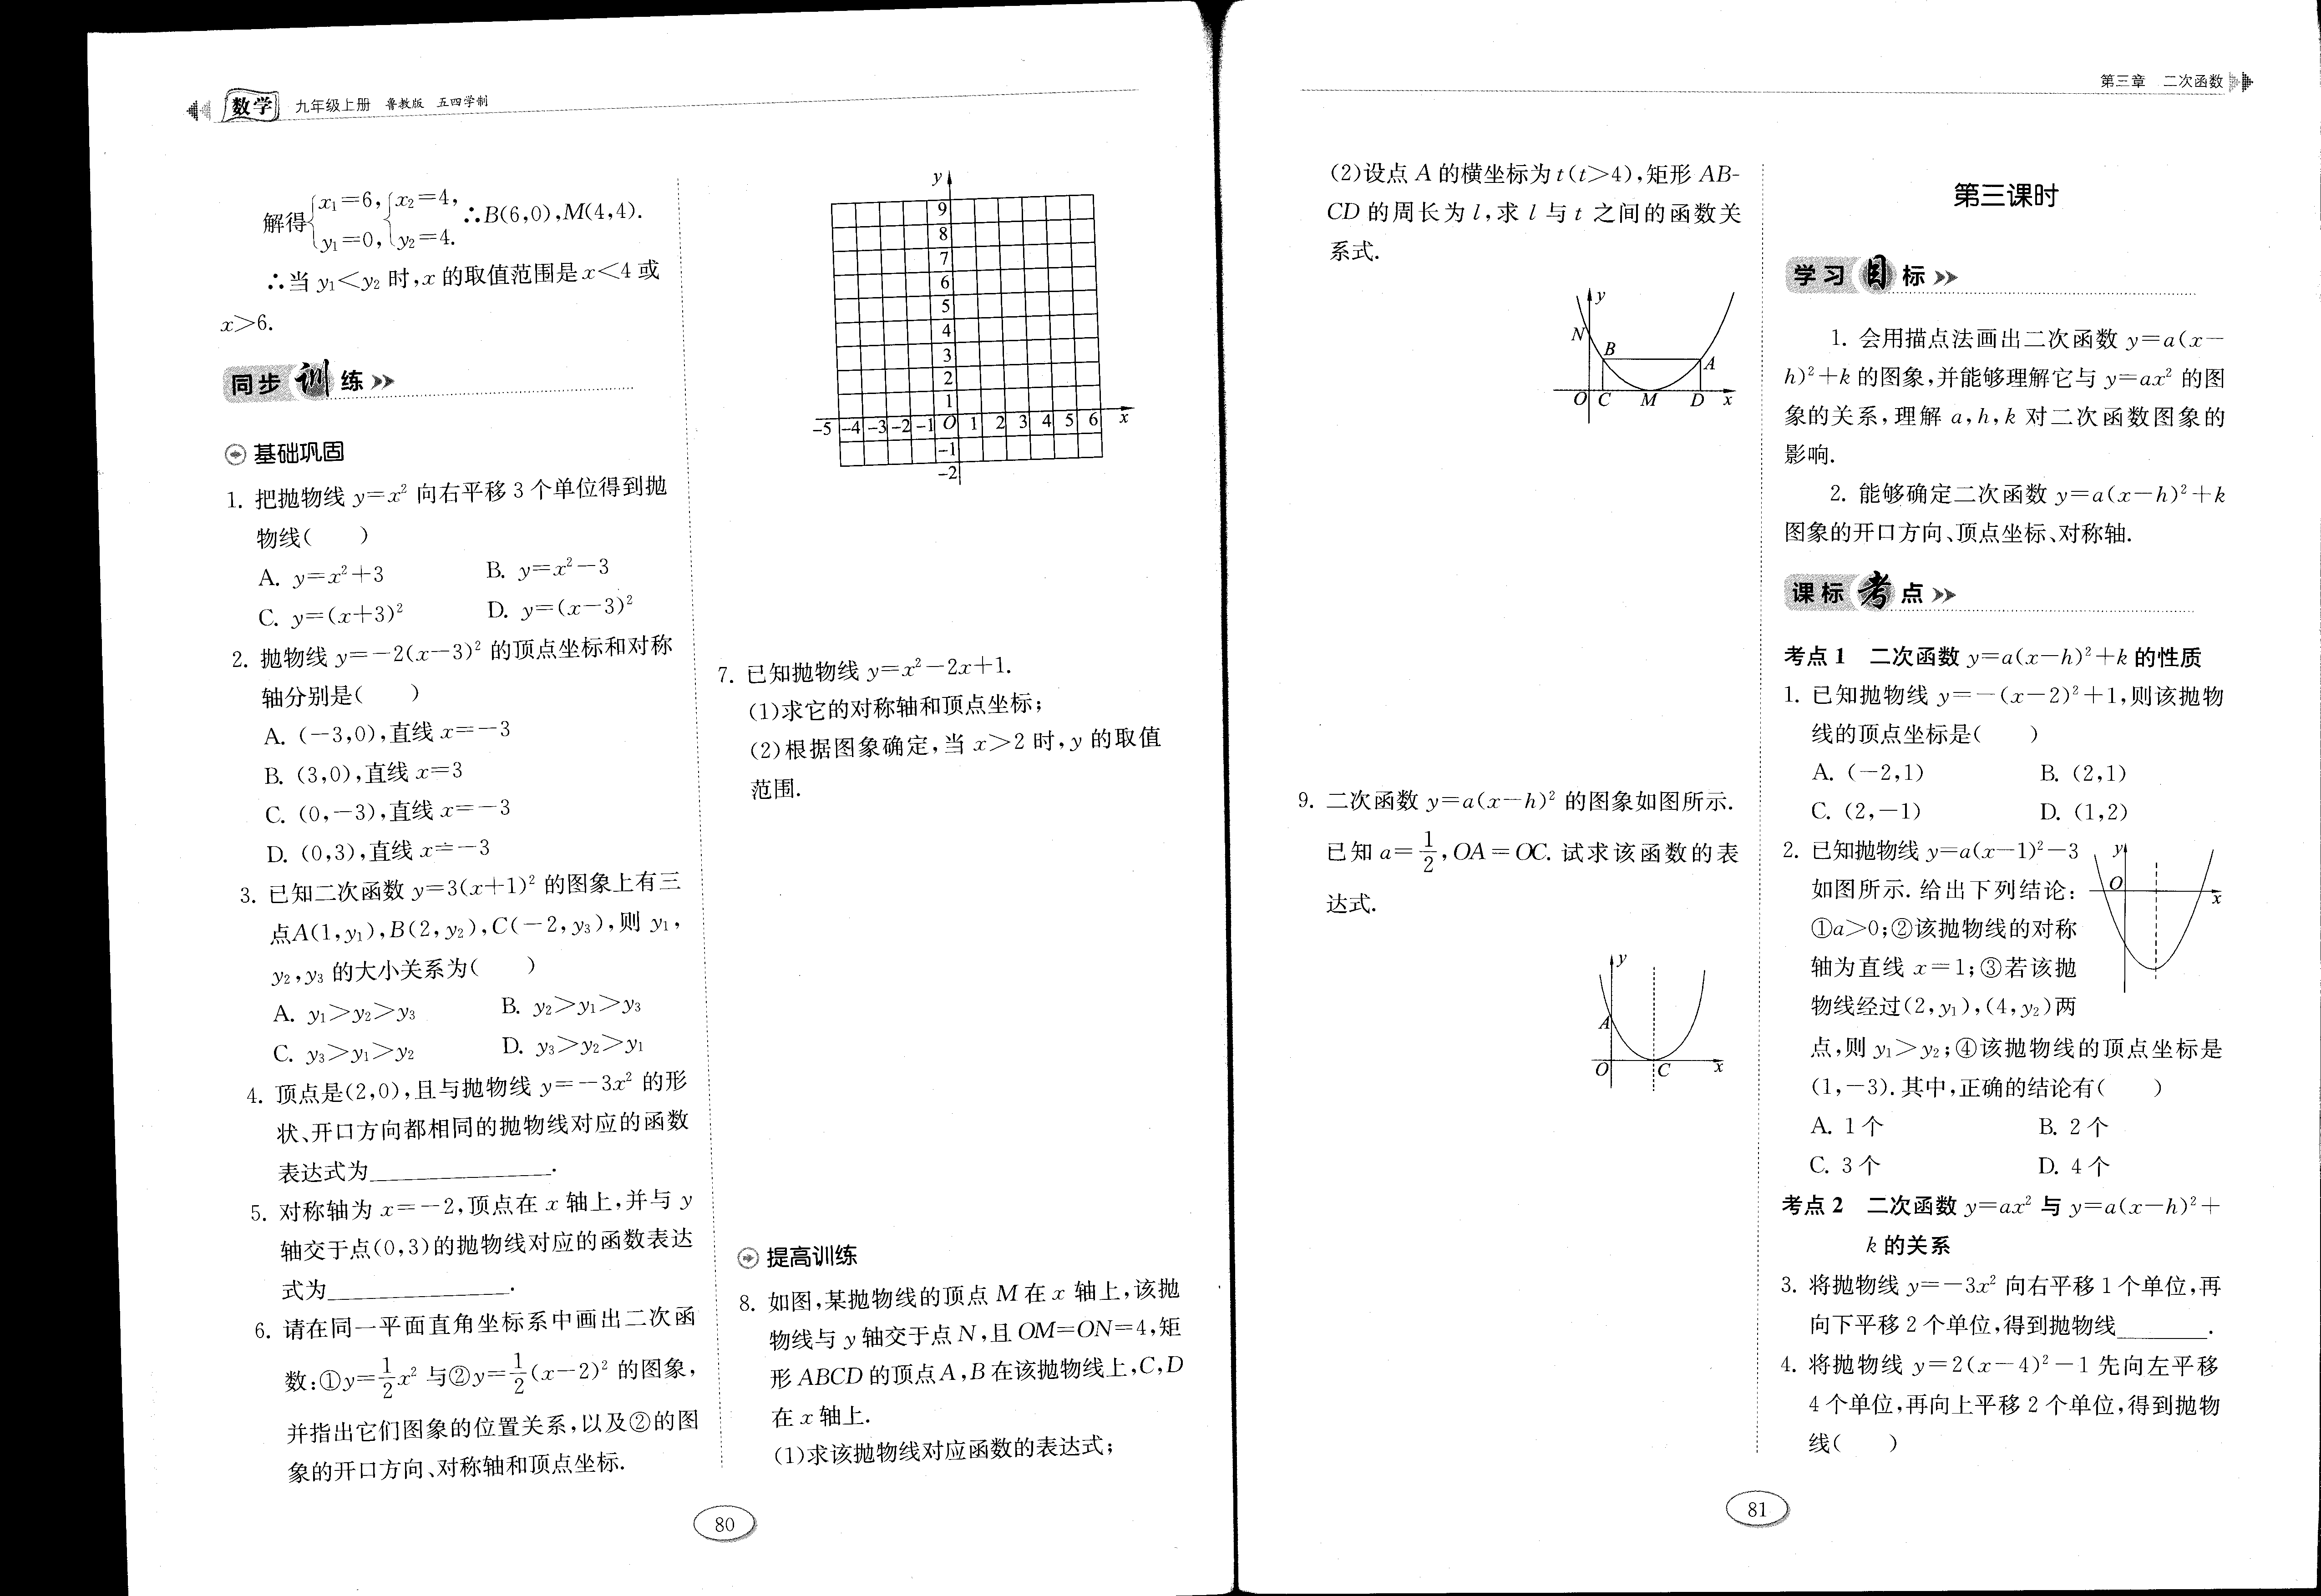 数学 九年级上册 鲁教版 五四学制
解得{x₁=6, y₁=0, {x₂=4, y₂=4. ∴B(6,0),M(4,4).
∴当 y₁<y₂ 时,x 的取值范围是 x<4 或
x>6.
同步训练
基础巩固
1. 把抛物线 y=x² 向右平移 3 个单位得到抛
物线(　　)
A. y=x²+3　B. y=x²-3
C. y=(x+3)²　D. y=(x-3)²
2. 抛物线 y=-2(x-3)² 的顶点坐标和对称
轴分别是(　　)
A. (-3,0),直线 x=-3
B. (3,0),直线 x=3
C. (0,-3),直线 x=-3
D. (0,3),直线 x=-3
3. 已知二次函数 y=3(x+1)² 的图象上有三
点A(1,y₁),B(2,y₂),C(-2,y₃),则 y₁,
y₂,y₃ 的大小关系为(　　)
A. y₁>y₂>y₃　B. y₂>y₁>y₃
C. y₃>y₁>y₂　D. y₃>y₂>y₁
4. 顶点是(2,0),且与抛物线 y=-3x² 的形
状、开口方向都相同的抛物线对应的函数
表达式为________.
5. 对称轴为 x=-2,顶点在 x 轴上,并与 y
轴交于点(0,3)的抛物线对应的函数表达
式为________.
6. 请在同一平面直角坐标系中画出二次函
数:①y=1/2x² 与②y=1/2(x-2)² 的图象,
并指出它们图象的位置关系,以及②的图
象的开口方向、对称轴和顶点坐标.
y
9
8
7
6
5
4
3
2
1
-5 -4 -3 -2 -1 O 1 2 3 4 5 6 x
-1
-2
7. 已知抛物线 y=x²-2x+1.
(1)求它的对称轴和顶点坐标;
(2)根据图象确定,当 x>2 时,y 的取值
范围.
提高训练
8. 如图,某抛物线的顶点 M 在 x 轴上,该抛
物线与 y 轴交于点 N,且 OM=ON=4,矩
形 ABCD 的顶点A,B 在该抛物线上,C,D
在 x 轴上.
(1)求该抛物线对应函数的表达式;
80
第三章　二次函数
(2)设点 A 的横坐标为 t(t>4),矩形 AB-
CD 的周长为 l,求 l 与 t 之间的函数关
系式.
y
N
B
A
O C M D x
9. 二次函数 y=a(x-h)² 的图象如图所示.
已知 a=1/2,OA=OC. 试求该函数的表
达式.
y
A
O C x
第三课时
学习目标
1. 会用描点法画出二次函数 y=a(x-
h)²+k 的图象,并能够理解它与 y=ax² 的图
象的关系,理解 a,h,k 对二次函数图象的
影响.
2. 能够确定二次函数 y=a(x-h)²+k
图象的开口方向、顶点坐标、对称轴.
课标考点
考点 1　二次函数 y=a(x-h)²+k 的性质
1. 已知抛物线 y=-(x-2)²+1,则该抛物
线的顶点坐标是(　　)
A. (-2,1)　B. (2,1)
C. (2,-1)　D. (1,2)
2. 已知抛物线 y=a(x-1)²-3
如图所示. 给出下列结论:
①a>0;②该抛物线的对称
轴为直线 x=1;③若该抛
物线经过(2,y₁),(4,y₂)两
点,则 y₁>y₂;④该抛物线的顶点坐标是
(1,-3). 其中,正确的结论有(　　)
y
O
x
A. 1 个　B. 2 个
C. 3 个　D. 4 个
考点 2　二次函数 y=ax² 与 y=a(x-h)²+
k 的关系
3. 将抛物线 y=-3x² 向右平移 1 个单位,再
向下平移 2 个单位,得到抛物线________.
4. 将抛物线 y=2(x-4)²-1 先向左平移
4 个单位,再向上平移 2 个单位,得到抛物
线(　　)
81